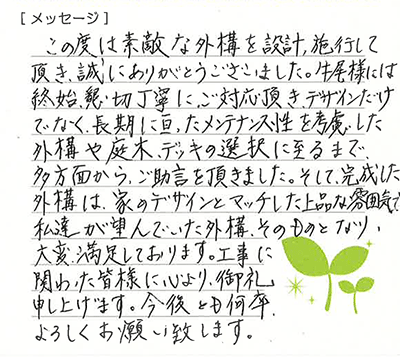 [メッセージ]
この度は素敵な外構を設計,施行して
頂き、誠にありがとうございました。牛尾様には
終始、懇切丁寧に、ご対応頂き、デザインだけ
でなく、長期に亘ったメンテナンス性を考慮した
外構や庭木、デッキの選択に至るまで、
多方面から、ご助言を頂きました。そして、完成した
外構は、家のデザインとマッチした上品な雰囲気で
私達が望んでいた外構、そのものとなり、
大変、満足しております。工事に
関わった皆様に心より、御礼
申し上げます。今後とも何卒、
よろしくお願い致します。